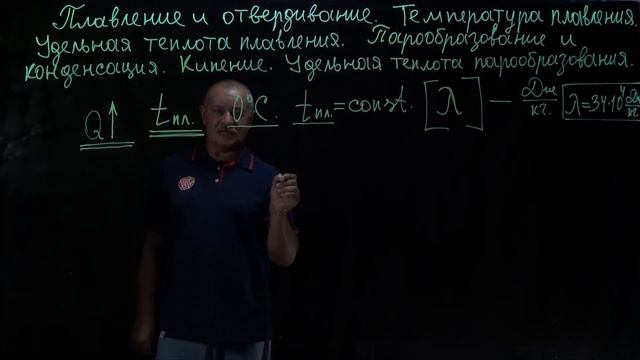 Плавление и отвердивание. Температура плавления.
Удельная теплота плавления. Парообразование и
конденсация. Кипение. Удельная теплота парообразования.
Q↑ tпл. 0°C. tпл.=const. [λ] — Дж/кг. λ=34·10⁴ Дж/кг.